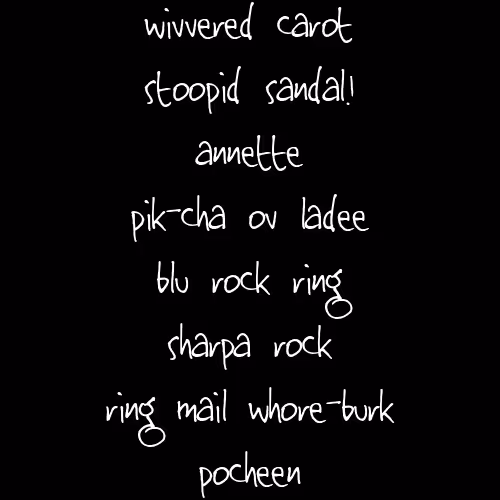 wivvered carot
stoopid sandal!
annette
pik-cha ov ladee
blu rock ring
sharpa rock
ring mail whore-burk
pocheen